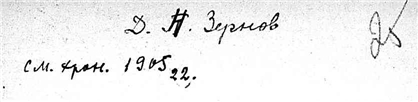 Д. Н. Зернов
25
см. хрон. 1905 22,